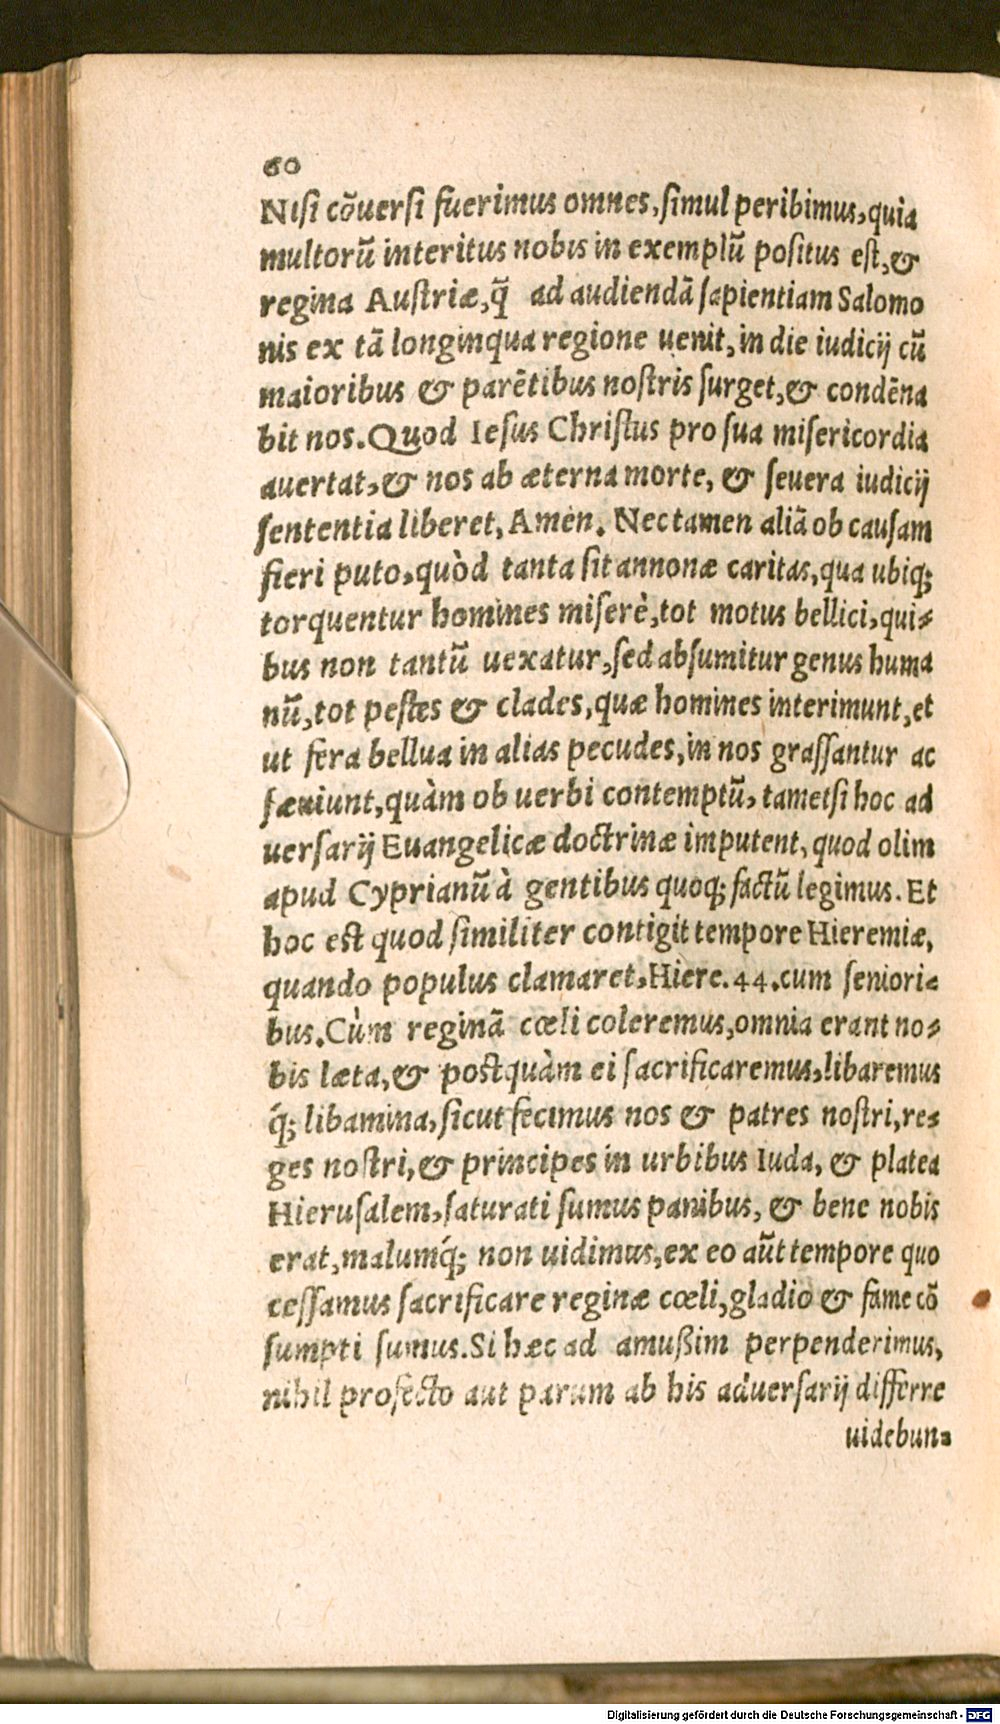 60
Nisi cõuersi fuerimus omnes, simul peribimus, quia
multorũ interitus nobis in exemplũ positus est, &
regina Austriæ, q̃ ad audiendã sapientiam Salomo
nis ex tã longinqua regione uenit, in die iudicij cũ
maioribus & parẽtibus nostris surget, & condẽna
bit nos. Quod Iesus Christus pro sua misericordia
auertat, & nos ab æterna morte, & seuera iudicij
sententia liberet, Amen. Nec tamen aliã ob causam
fieri puto, quòd tanta sit annonæ caritas, qua ubiq;
torquentur homines miserè, tot motus bellici, qui-
bus non tantũ uexatur, sed absumitur genus huma
nũ, tot pestes & clades, quæ homines interimunt, et
ut fera bellua in alias pecudes, in nos grassantur ac
sæuiunt, quàm ob uerbi contemptũ, tametsi hoc ad
uersarij Euangelicæ doctrinæ imputent, quod olim
apud Cyprianũ à gentibus quoq; factũ legimus. Et
hoc est quod similiter contigit tempore Hieremiæ,
quando populus clamaret, Hiere. 44. cum seniori-
bus. Cùm reginã cœli coleremus, omnia erant no-
bis læta, & postquàm ei sacrificaremus, libaremus
q́; libamina, sicut fecimus nos & patres nostri, re-
ges nostri, & principes in urbibus Iuda, & platea
Hierusalem, saturati sumus panibus, & bene nobis
erat, malumq́; non uidimus, ex eo aũt tempore quo
cessamus sacrificare reginæ cœli, gladio & fame cõ
sumpti sumus. Si hæc ad amußim perpenderimus,
nihil profecto aut parum ab his aduersarij differre
uidebun-
Digitalisierung gefördert durch die Deutsche Forschungsgemeinschaft - DFG